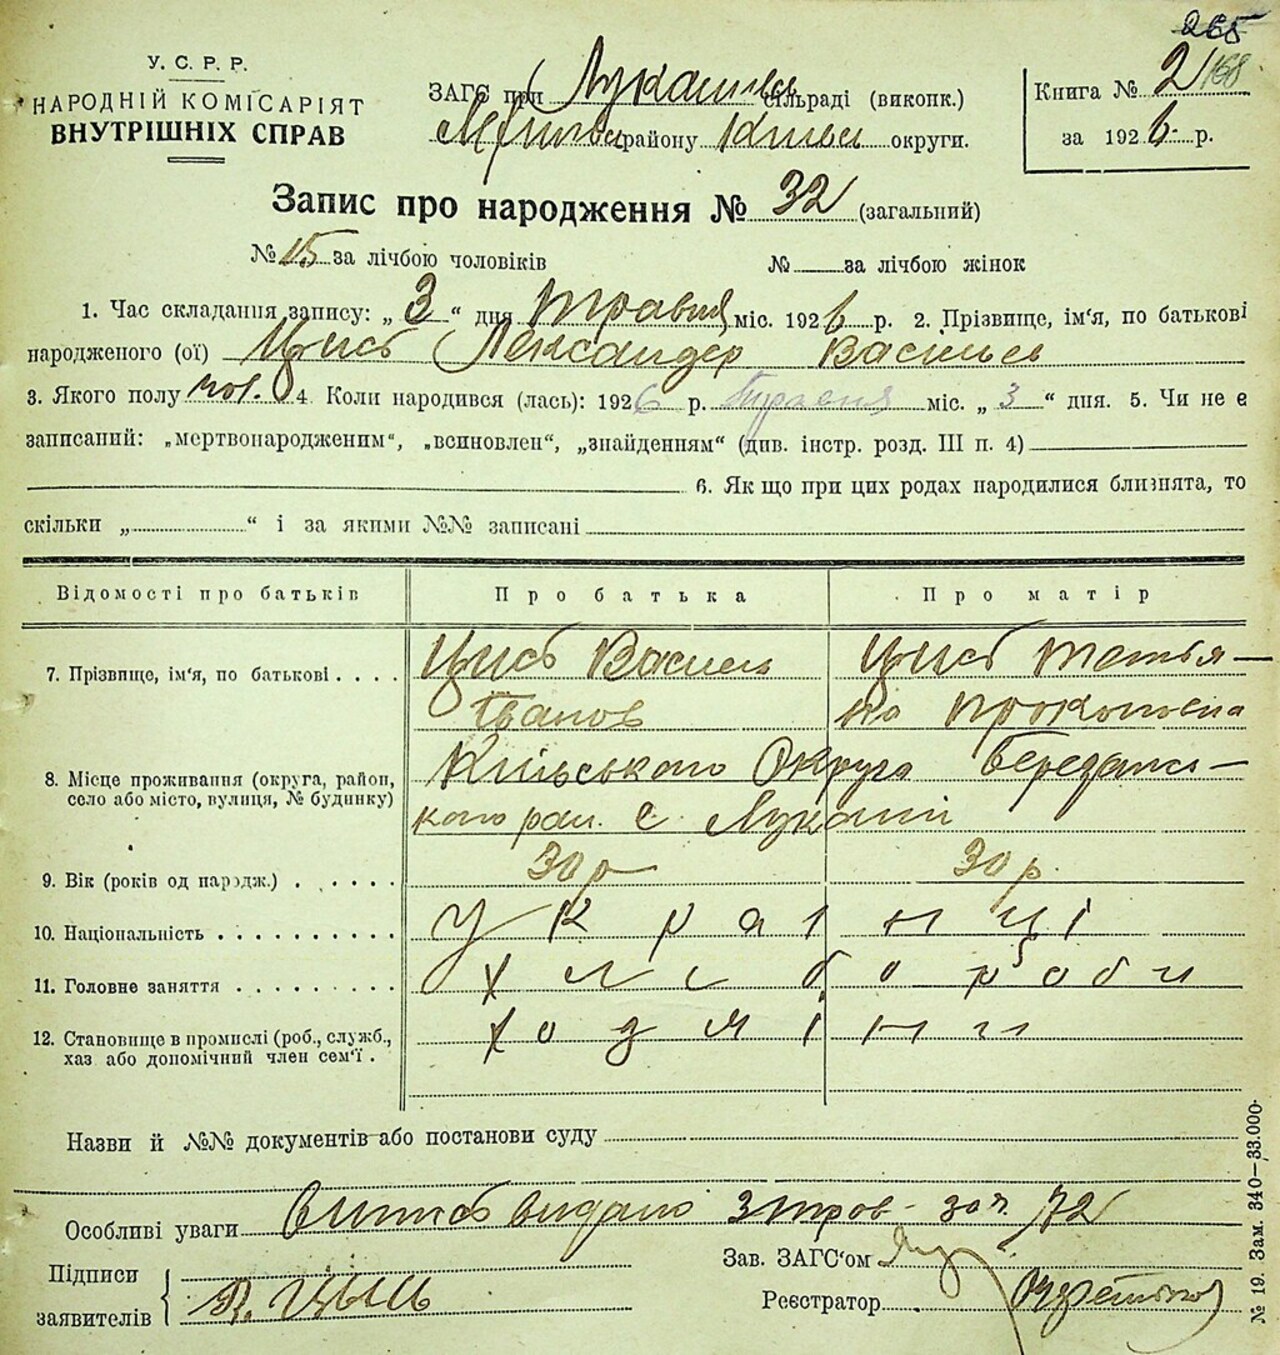 265
У. С. Р. Р.
НАРОДНІЙ КОМІСАРІЯТ
ВНУТРІШНІХ СПРАВ
ЗАГС при Лукашивс сільраді (виконк.)
району Києвс округи.
Книга № 2 168
за 1926 р.
Запис про народження № 32 (загальний)
№ 15 за лічбою чоловіків № за лічбою жінок
1. Час складання запису: „ 3 “ дня травня міс. 1926 р. 2. Прізвище, ім‘я, по батькові
народженого (ої) Цись Лександер Васильев
3. Якого полу чол. 4 Коли народився (лась): 1926 р. травня міс. „ 3 “ дня. 5. Чи не є
записаний: „мертвонародженим“, „всиновлен“, „знайденням“ (див. інстр. розд. III п. 4)
6. Як що при цих родах народилися близнята, то
скільки „ “ і за якими №№ записані
Відомості про батьків Про батька Про матір
7. Прізвище, ім‘я, по батькові . . . . Цись Василь Цись Татья–
Іванов на Прокоповна
8. Місце проживання (округа, район, Київського Округа Березанс–
село або місто, вулиця, № будинку) кого рай. с. Лукаші
9. Вік (років од народж.) . . . . . . 30 р 30 р.
10. Національність . . . . . . . . . . українці
11. Головне заняття . . . . . . . . . хлебороби
12. Становище в промислі (роб., служб.,
хаз або допомічний член сем‘ї . хозяїни
Назви й №№ документів або постанови суду
Особливі уваги Витяг видано 3 трав. зап. 72
Підписи
заявителів
В. Цысь
Зав. ЗАГС‘ом
Реєстратор
№ 19. Зам. 340—33.000.